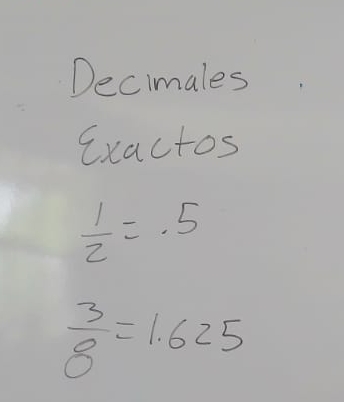 Decimales
Exactos
1/2 = .5
3/8 = 1.625